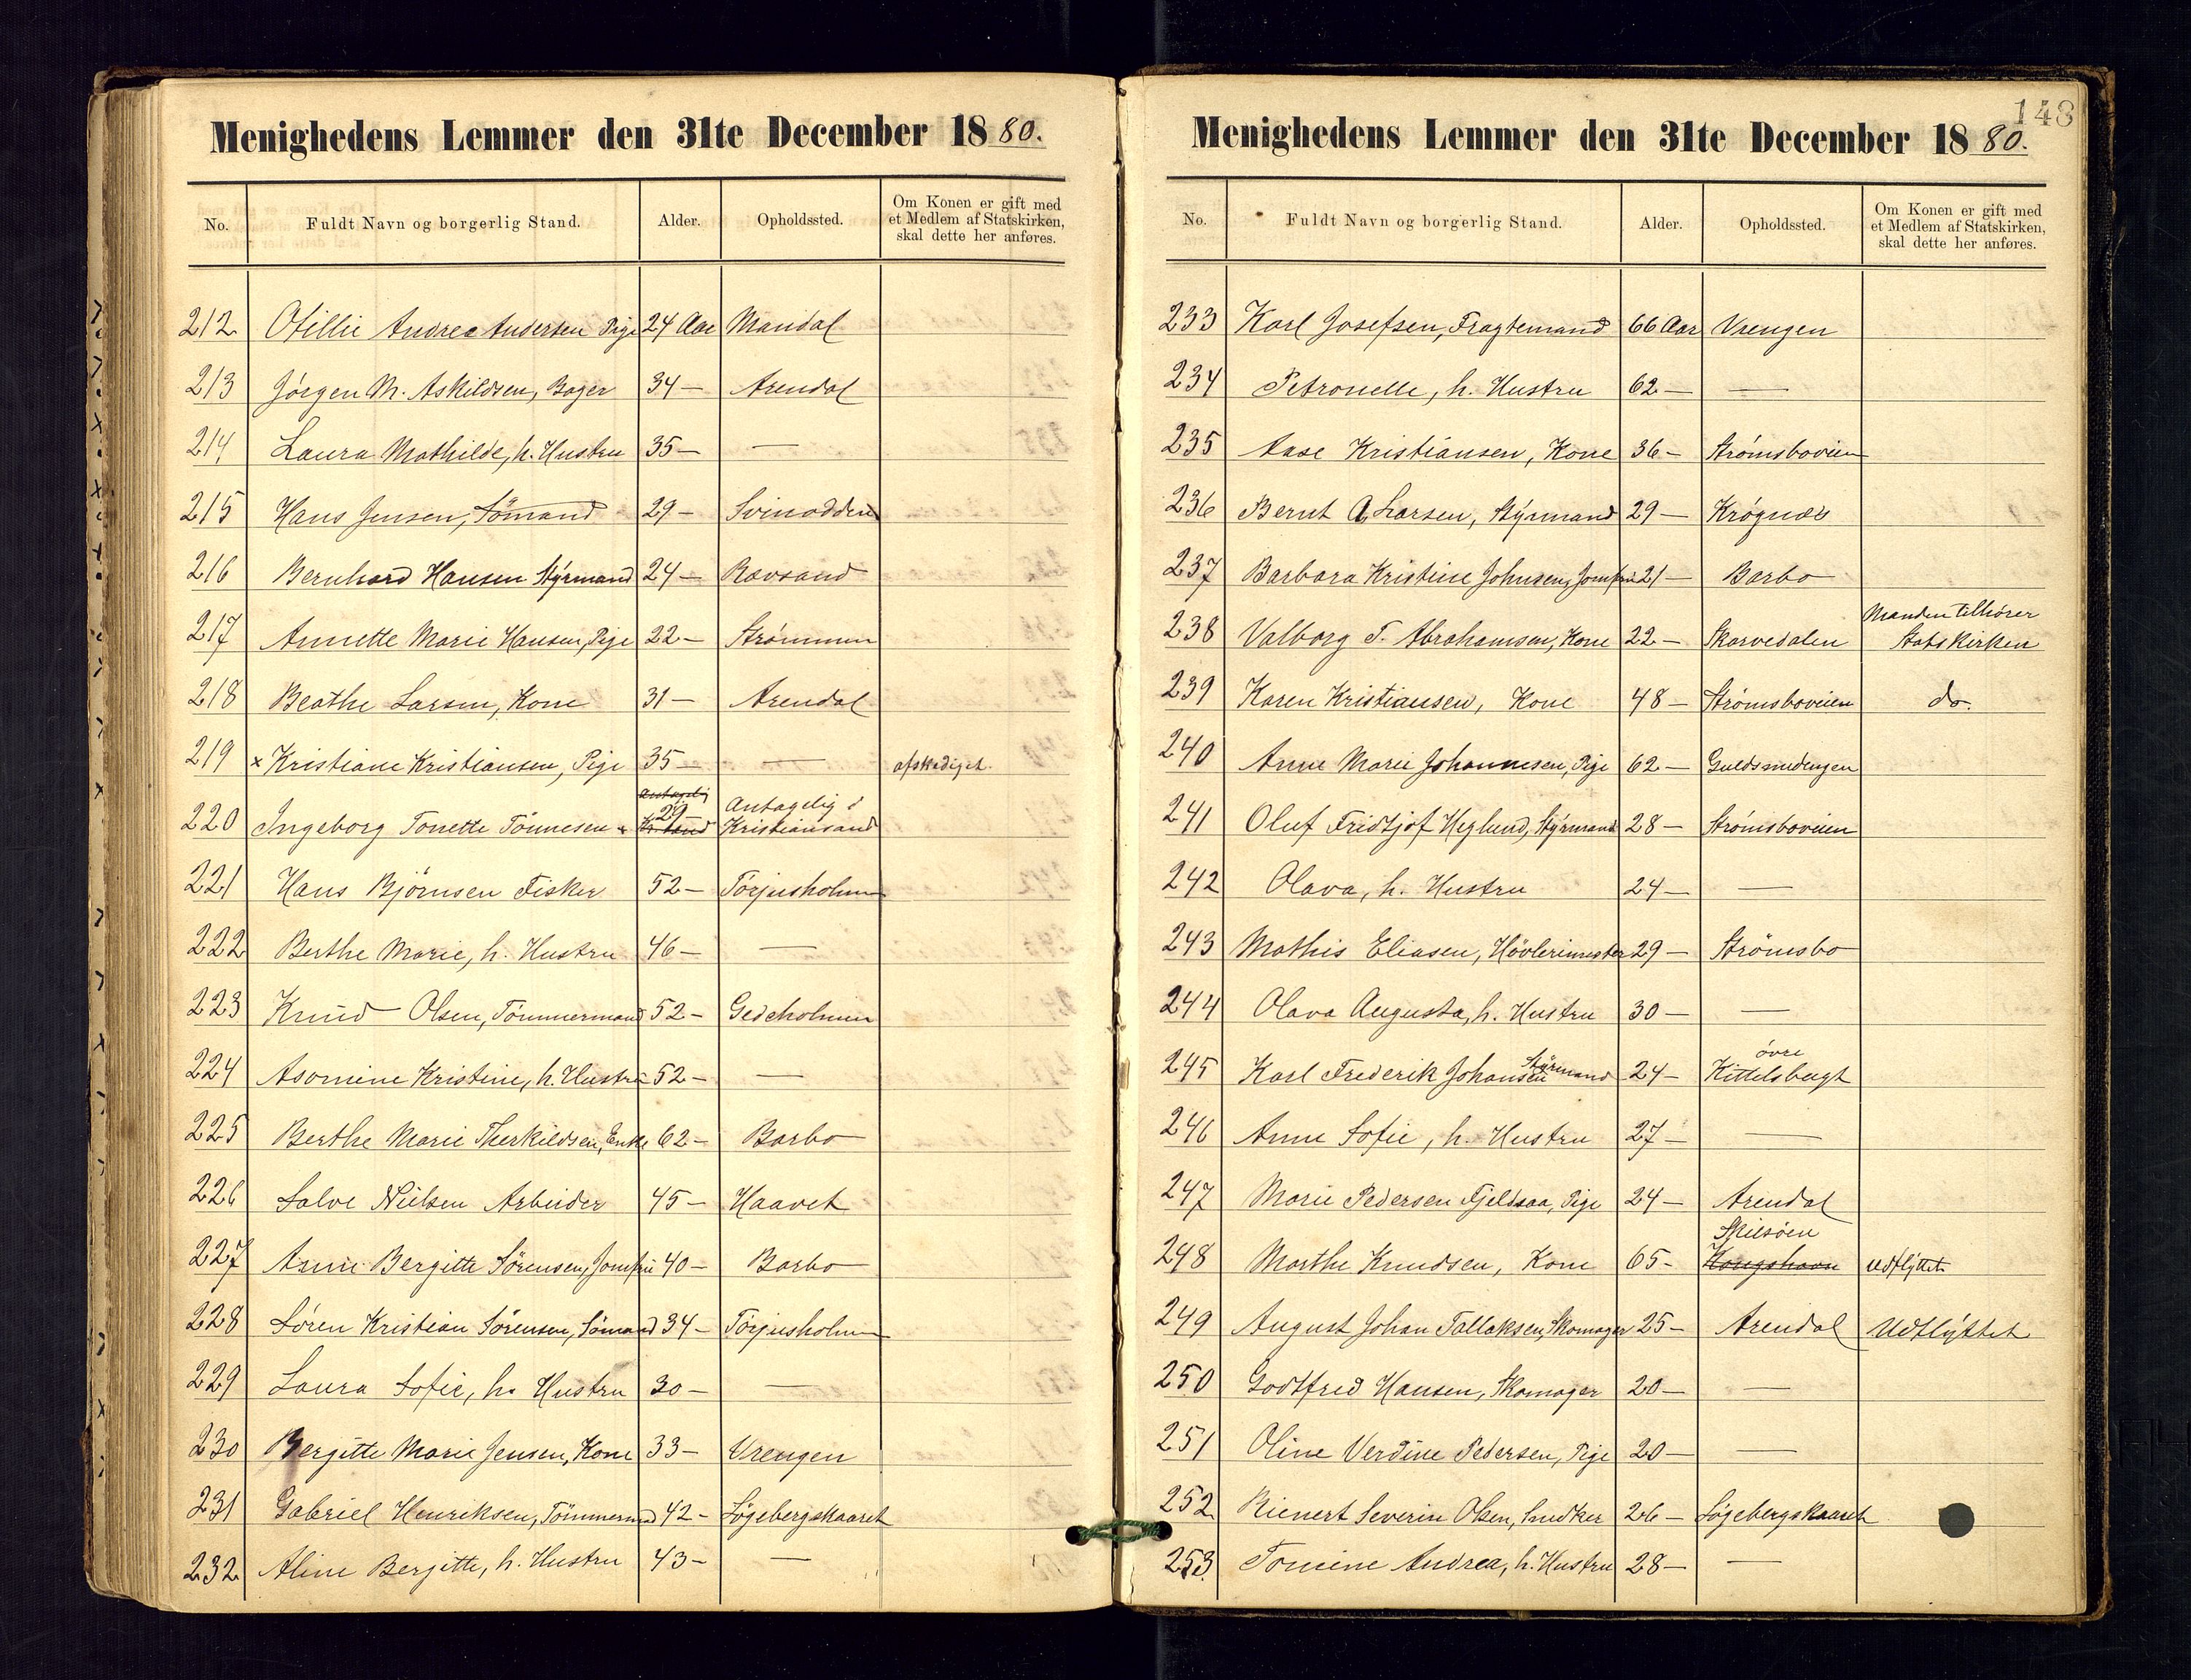 Menighedens Lemmer den 31te December 1880.
No. Fuldt Navn og borgerlig Stand. Alder. Opholdssted. Om Konen er gift med et Medlem af Statskirken, skal dette her anføres.
212 Otillie Andrea Andersen Pige 24 Aar Mandal
213 Jörgen M. Askildsen, Bager 34 — Arendal
214 Laura Mathilde, h. Hustru 35 — —
215 Hans Jensen, Sömand 29 — Svinodden
216 Bernhard Hansen Styrmand 24 — Ravsand
217 Annette Marie Hansen, Pige 22 — Strømmen
218 Beathe Larsen, Kone 31 — Arendal
219 x Kristiane Kristiansen, Pige 35 — — afskediget
220 Ingeborg Tonette Tönnesen 29 Antagelig i Kristiansand
221 Hans Björnsen Fisker 52 — Törjusholmen
222 Berthe Marie, h. Hustru 46 — —
223 Knud Olsen, Tömmermand 52 — Gedeholmen
224 Asomine Kristine, h. Hustru 52 — —
225 Berthe Marie Therkildsen, Enke 62 — Barbo
226 Salve Nielsen Arbeider 45 — Haavet
227 Anne Bergitte Sörensen, Jomfru 40 — Barbo
228 Sören Kristian Sörensen, Sömand 34 — Törjusholmen
229 Laura Sofie, h. Hustru 30 — —
230 Bergitte Marie Jensen, Kone 33 — Vrengen
231 Gabriel Henriksen, Tömmermand 42 — Lögebergskaaret
232 Aline Bergitte, h. Hustru 43 — —
148
Menighedens Lemmer den 31te December 1880.
No. Fuldt Navn og borgerlig Stand. Alder. Opholdssted. Om Konen er gift med et Medlem af Statskirken, skal dette her anføres.
233 Karl Josefsen, Fragtemand 66 Aar Vrengen
234 Petronelle, h. Hustru 62 — —
235 Aase Kristiansen, Kone 36 — Strømsboveien
236 Bernt A. Larsen, Styrmand 29 — Krögnæs
237 Barbara Kristine Johnsen, Jomfru 21 — Barbo
238 Valborg T. Abrahamsen, Kone 22 — Skarvedalen Manden tilhører Statskirken
239 Karen Kristiansen, Kone 48 — Strømsboveien do.
240 Anne Marie Johannesen, Pige 62 — Guldsmedengen
241 Oluf Fridtjof Heglund, Styrmand 28 — Strømsboveien
242 Olava, h. Hustru 24 — —
243 Mathis Eliasen, Hövlerimester 29 — Strömsbo
244 Olava Augusta, h. Hustru 30 — —
245 Karl Frederik Johansen Styrmand 24 — övre Kittelsbugt
246 Anne Sofie, h. Hustru 27 — —
247 Marie Pedersen Fjeldsaa, Pige 24 — Arendal
248 Marthe Knudsen, Kone 65 — Skilsöen Kongshavn udflyttet
249 August Johan Tallaksen, Skomager 25 — Arendal Udflyttet
250 Godtfred Hansen, Skomager 20 — —
251 Oline Verdine Pedersen, Pige 20 — —
252 Rienert Severin Olsen, Snedker 26 — Lögebergskaaret
253 Tomine Andrea, h. Hustru 28 — —